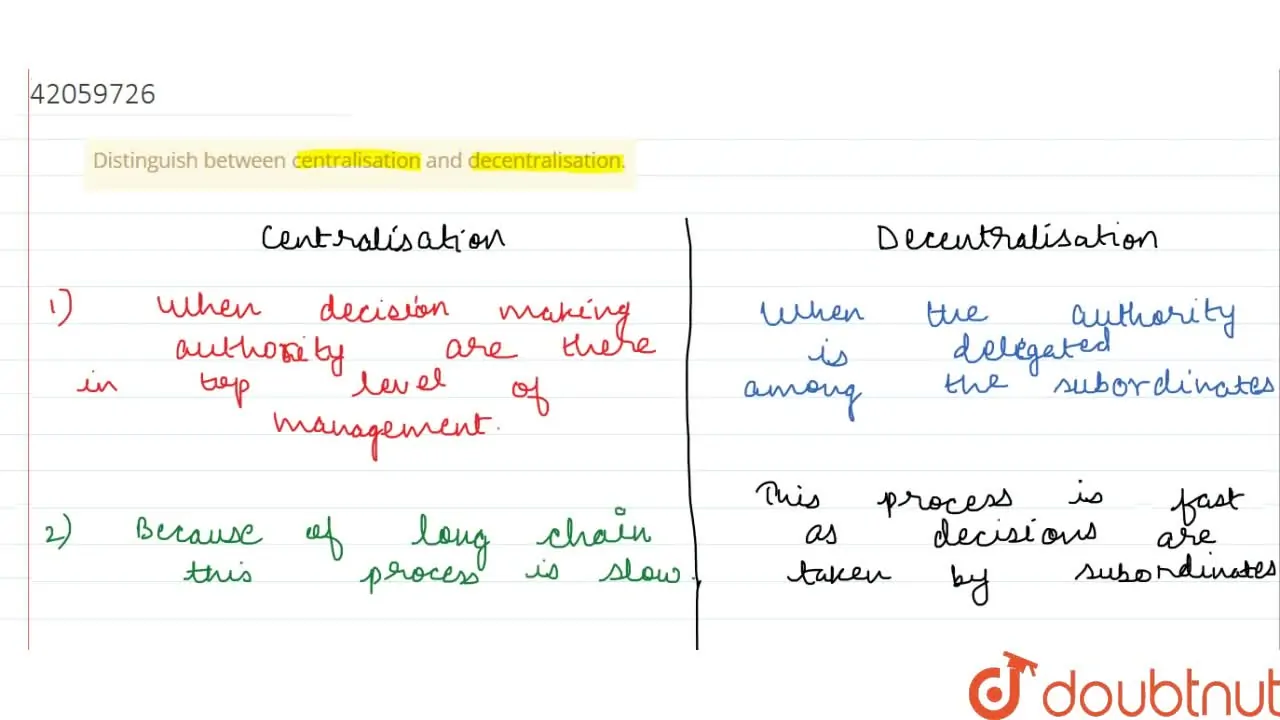 42059726
Distinguish between centralisation and decentralisation.
Centralisation
Decentralisation
1) When decision making
authority are there
in top level of
management.
When the authority
is delegated
among the subordinates
2) Because of long chain
this process is slow.
This process is fast
as decisions are
taken by subordinates
doubtnut